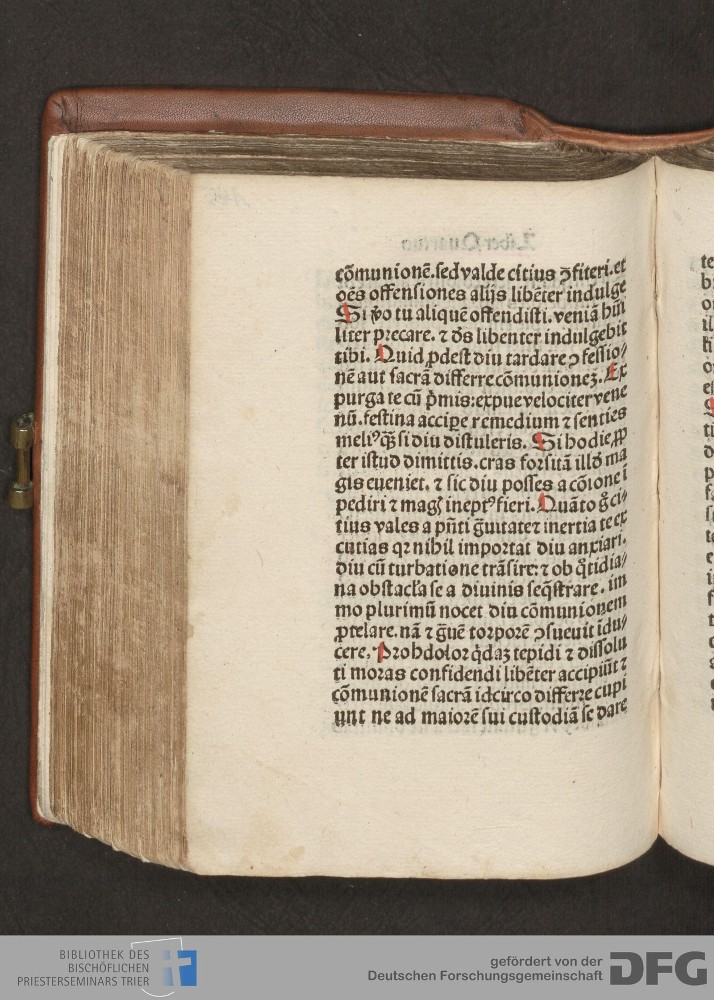 cōmunionē. sed valde citius ɔfiteri. et
oēs offensiones alijs libēter indulge
Si ꝟo tu aliquē offendisti. veniā hūi
liter precare. ⁊ dſ̄ libenter indulgebit
tibi. Quid ꝓdest diu tardare ɔfessio⸗
nē aut sacrā differre cōmunionez. Ex
purga te cū p̄mis: expue velociter vene
nū. festina accipe remedium ⁊ senties
meliꝰ qȝ si diu distuleris. Si hodie ꝓp
ter istud dimittis. cras forsitā illd̄ ma
gis eueniet. ⁊ sic diu posses a cōione ī
pediri ⁊ magꝭ ineptꝰ fieri. Quāto g̊ ci⸗
tius vales a pn̄ti g̈uitate ⁊ inertia te ex
cutias qꝛ nihil importat diu anxiari.
diu cū turbatione trāsire: ⁊ ob q̊tidia⸗
na obstacl̄a se a diuinis seq̄strare. im
mo plurimū nocet diu cōmunionem
ꝓtelare. nā ⁊ g̈uē torporē ɔsueuit īdu⸗
cere. Proh dolor q̇daȝ tepidi ⁊ dissolu
ti moras confidendi libēter accipiūt ⁊
cōmunionē sacrā idcirco differre cupi
unt ne ad maiorē sui custodiā se dare
BIBLIOTHEK DES
BISCHÖFLICHEN
PRIESTERSEMINARS TRIER
gefördert von der
Deutschen Forschungsgemeinschaft
DFG